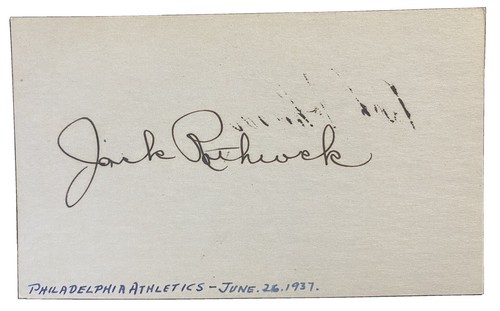 Jack Rothrock
PHILADELPHIA ATHLETICS - JUNE. 26. 1937.